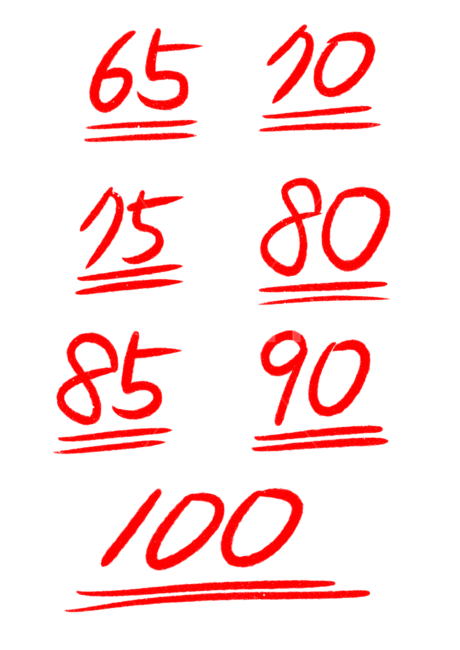 65 70
75 80
85 90
100